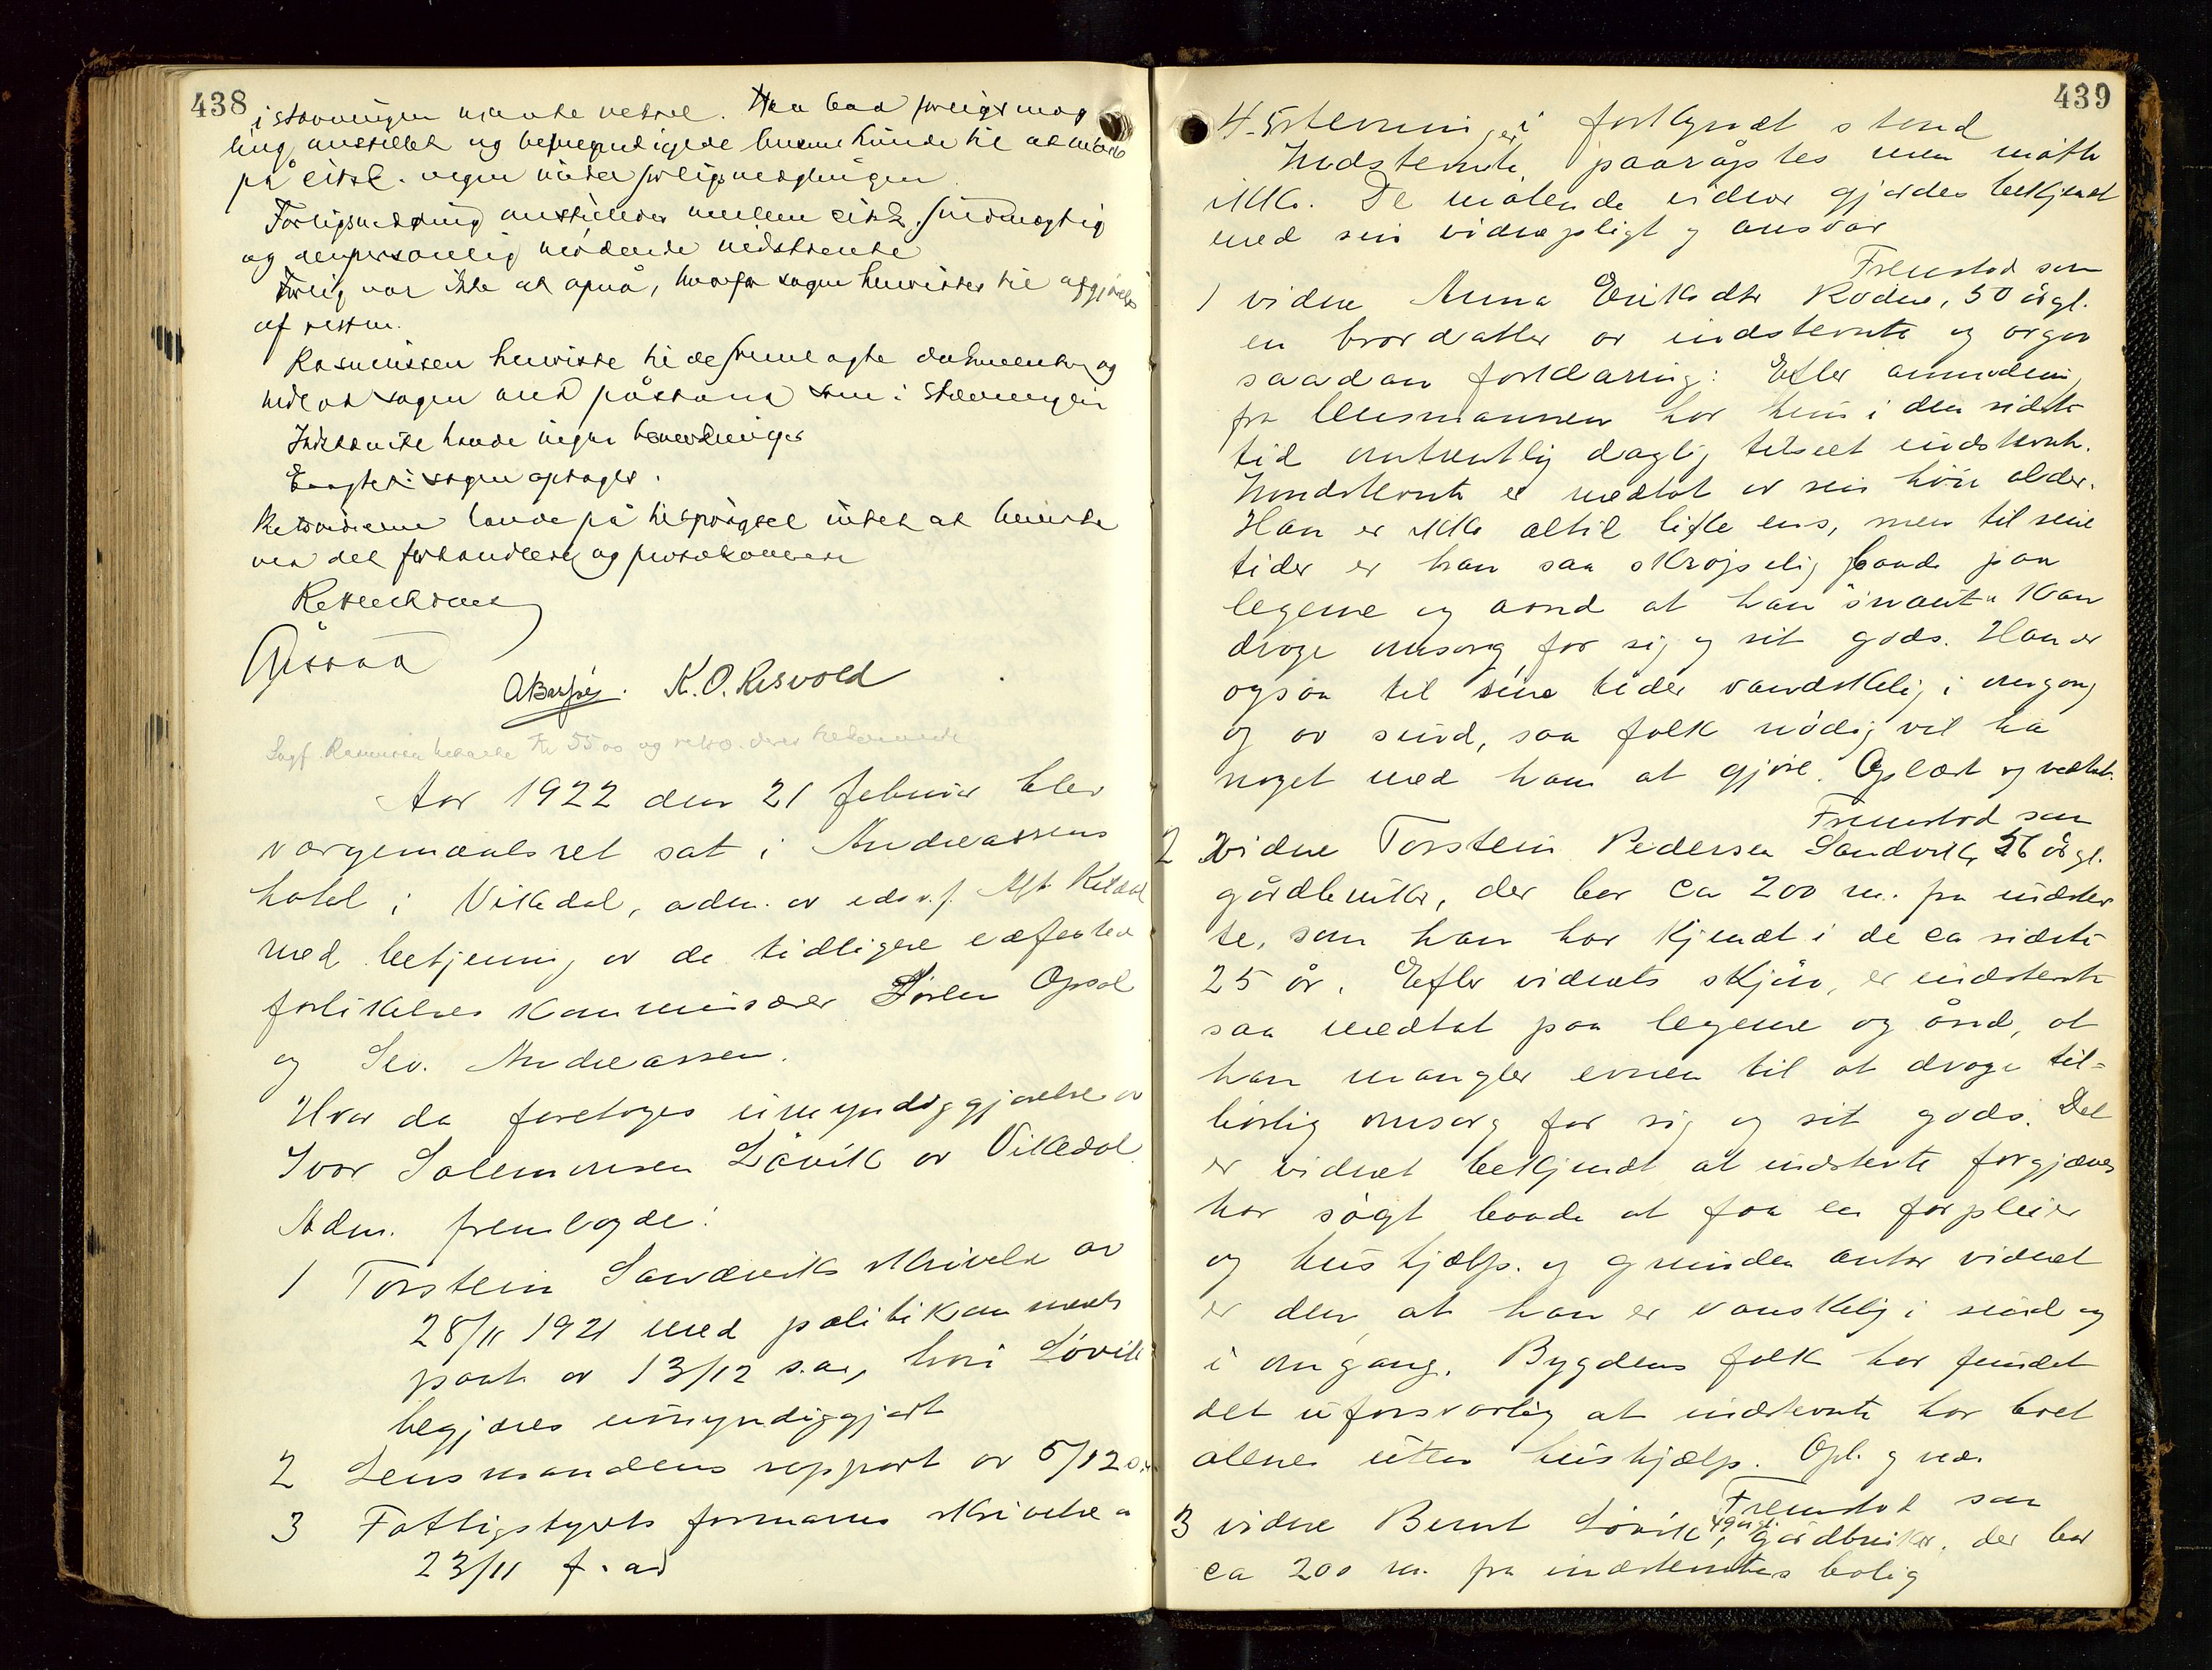 438
i stævningen nævnte vexel. Han bad forligsmæg
ling anstillet og bemyndigede
på citst. vegne under forligsmeglingen
Forligsmegling anstilledes mellem citst. fuldmægtig
og den personlig mødende indstevnte
Forlig var ikke at opnå, hvorfor sagen henvistes til afgjørelse
af retten.
Rasmussen henviste til de fremlagte dokumenter og
indlod sagen med påstand som i stævningen
Indstevnte havde ingen bemerkninger
Eragtet: sagen optages.
Retsvidnerne havde på tilspørgsel intet at bemerke
ved det forhandlede og protokollerede
Retten hævet
K. O. Risvold
Sagf. Rasmussen betalte Kr 55 00 og retsv. deres tilkommende
Aar 1922 den 21 februar blev
vergemaalsret sat i Andreassens
hotel i Vikedal, adm. av eds. f. Alf
med betjening av de tidligere edfestede
forlikelses kommisærer Sören Opsal
og Sev. Andreassen.
Hvor da foretoges umyndiggjørelse av
Ivar Salemonsen Lövik av Vikedal.
Adm. fremlagde:
1 Torstein Sandviks skrivelse av
28/11 1921 med politikammerets
paat. av 13/12 s.a., hvori Lövik
begjæres umyndiggjort
2 Lensmandens rapport av 5/12 s.a.
3 Fattigstyrets formanns skrivelse av
23/11 f. aar
439
4. Stevning i forkyndt stand
Indstevnte paaroptes men mötte
ikke. De mötende vidner gjordes bekjendt
med sin vidnepligt og ansvar
Fremstod som
1 vidne Anna Eriksdtr Rödne, 50 år gl.
en brordatter av indstevnte og avgav
saadan forklaring: Efter anmodning
fra lensmannen har hun i den sidste
tid omtrentlig daglig tilseet indstevnte.
Indstevnte er medtat av sin höie alder.
Han er ikke altid like ens, men til sine
tider er han saa skröpelig baade paa
legeme og aand at han umulig kan
drage omsorg for sig og sit gods. Han er
ogsaa til sine tider vandskelig i omgang
og av sind, saa folk nödig vil ha
noget med ham at gjöre. Oplæst og vedtat.
Fremstod som
2 vidne Torstein Pedersen Sandvik, 56 år gl.
gårdbruker, der bor ca 200 m. fra indstevn
te, som han har kjendt i de ca sidste
25 år. Efter vidnets skjön, er indstevnte
saa medtat paa legeme og ånd, at
han mangler evnen til at drage til-
börlig omsorg for sig og sit gods. Det
er vidnet bekjendt at indstevnte forgjæves
har sögt baade at faa en forpleier
og hushjælp. og grunden antar vidnet
er den, at han er vanskelig i sind og
i omgang. Bygdens folk har fundet
det uforsvarlig at indstevnte har boet
alene uten hushjælp. Opl. og ved.
Fremstod som
3 vidne Bernt Lövik, 49 år gl. gårdbruker, der bor
ca 200 m. fra indstevntes bolig